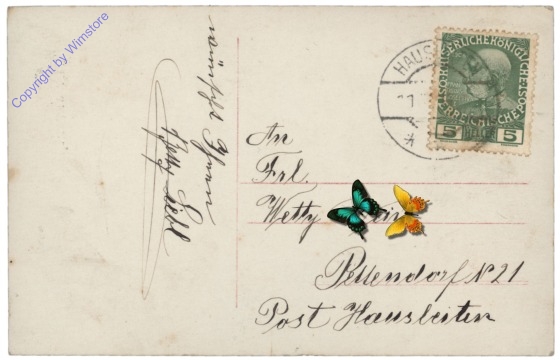 Copyright by Wimstore
wünscht Ihnen
HAUS
KAISERLICHE KÖNIGLICHE ÖSTERREICHISCHE POST
5 5
An
Frl.
Wetty
Pettendorf N 21
Post Hausleiten